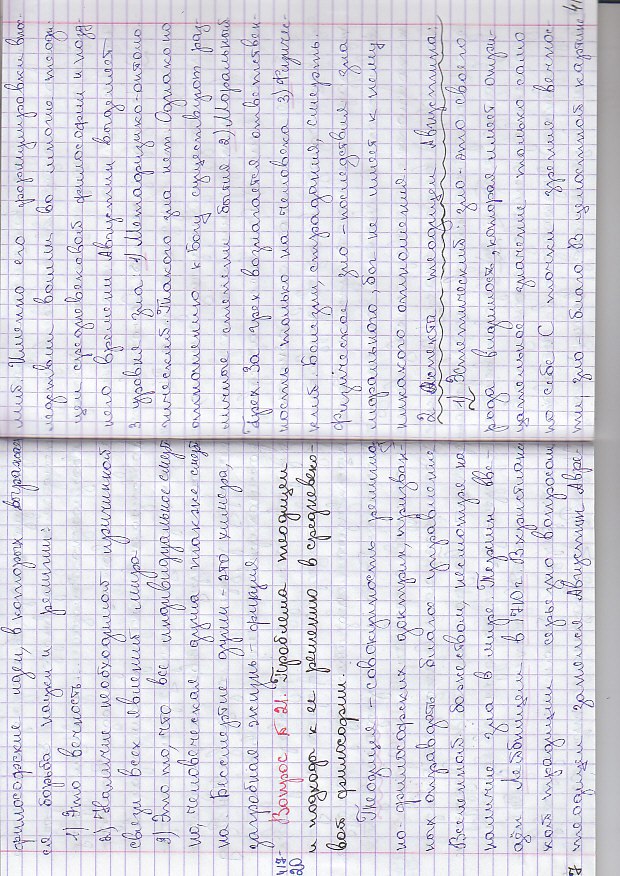 философские идеи, в которых отражается
ся борьба науки и религии:
1) Это вечность.
2) Наличие необходимой причинной
связи всех явлений мира.
3) Это то, что все индивидуальное смерт-
но, человеческая душа также смерт-
на. Бессмертие души - это химера,
загробная жизнь - фикция.
Вопрос № 21. Проблема теодицеи
и подходы к ее решению в средневеко-
вой философии.
Теодицея - совокупность религиоз-
но-философских доктрин, призван-
ных оправдать благое управление
Вселенной божеством, несмотря на
наличие зла в мире. Термин вво-
дит Лейбницем в 1710г. В христианс
кой традиции серьезно вопросом
теодицеи занялся Августин Авре-
лий. Именно его формулировки впо-
следствии вошли во многие теоди-
цеи средневековой философии и позд-
него времени. Августин выделяет
3 уровня зла 1) Метафизико-онтоло
гический. Такого зла нет. Однако по
отношению к Богу существуют раз-
личные степени бытия 2) Моральный
Грех. За грех возлагается ответствен-
ность только на человека 3) Физичес-
кий. Болезни, страдания, смерть.
Физическое зло - последствия зла
морального, бог не имеет к нему
никакого отношения.
2 Аспекта теодицеи Августина:
1) Эстетический: зло - это своего
рода видимость, которая имеет отри-
цательное значение только само
по себе. С точки зрения вечнос-
ти, зло - благо. В целостной картине
41